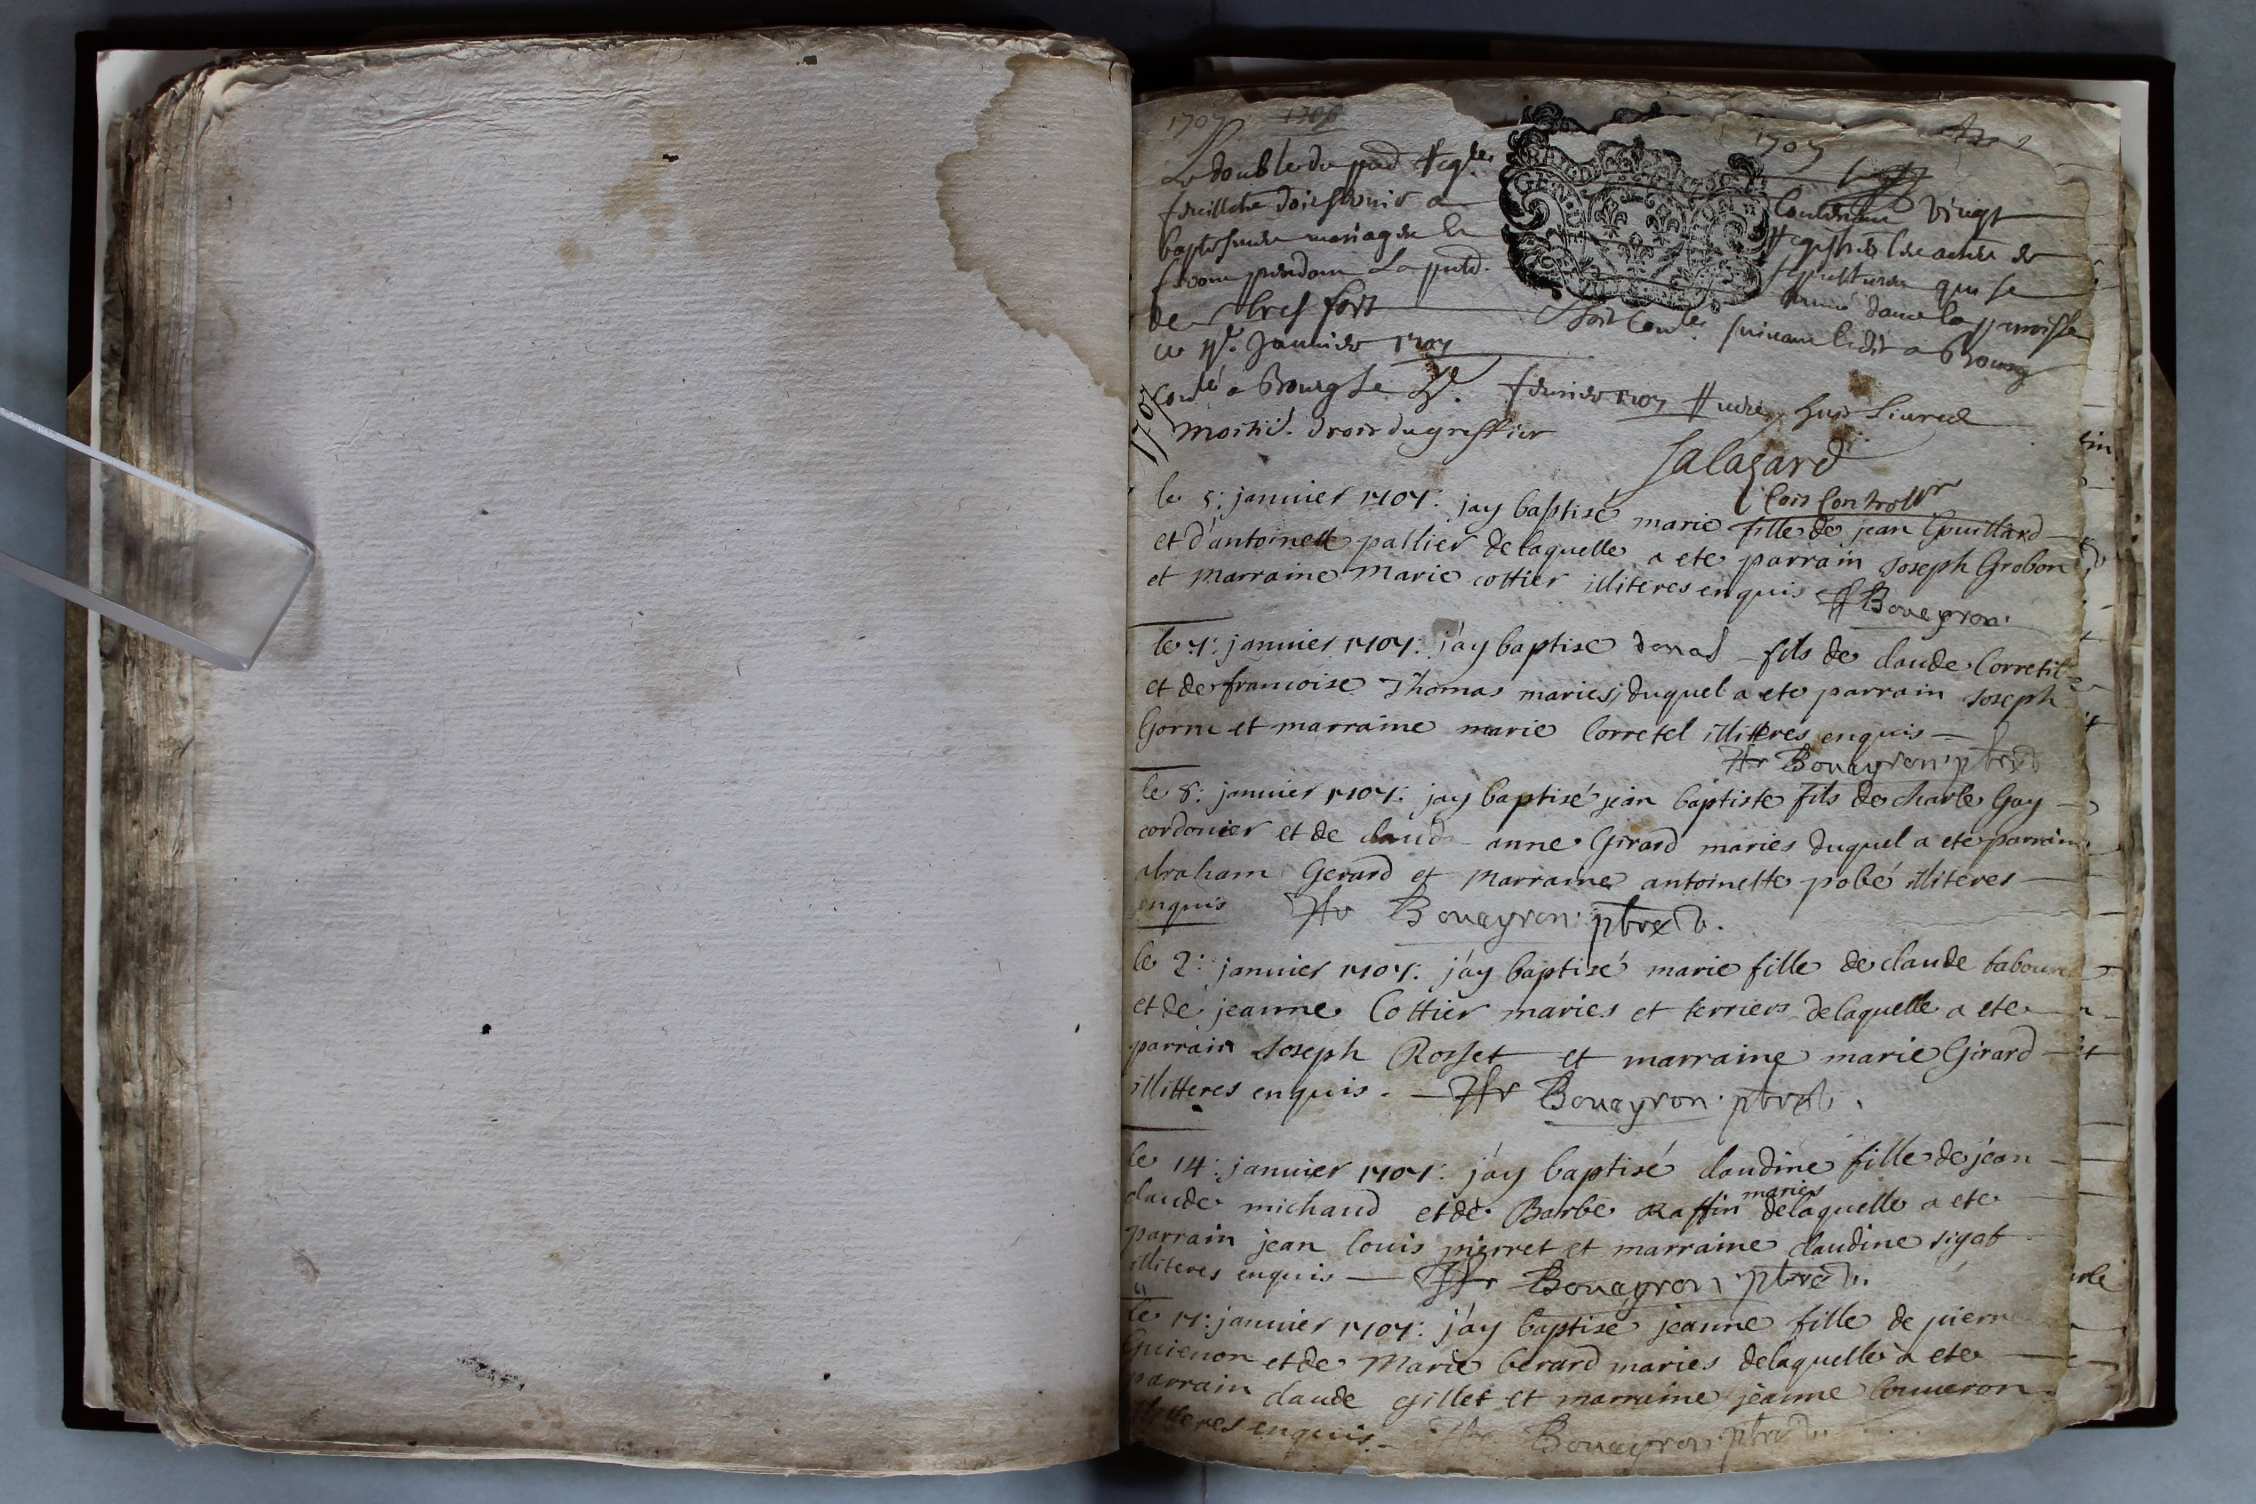 1707 1706 1707
Le double du pnt Regre Contenant vingt
feuillets doit servir a Registrer les actes de
baptesmes mariages et sepultures qui se
feront pendant La pnte année dans la parroisse
de tresfort soit Conlé suivant l'edit a Bourg
ce Janvier 1707
1707
Conlé a Bourg le fevrier 1707 Huit livres
moitié droit du greffier
Salazard
Cors Controlleur
le 5: janvier 1707: jay baptisé marie fille de jean Gouillard
et d'antoinette pallier delaquelle a ete parrain Joseph Grobon
et Marraine Marie cottier illiteres enquis Boueyron
le 7: janvier 1707: j'ay baptisé donad fils de claude Corretel
et de francoise Thomas maries, duquel a ete parrain Joseph
Gorra et marraine marie Corretel illiteres enquis
Boueyron ptre
le 8: janvier 1707: jay baptisé jean baptiste fils de charle Gay
cordonier et de claude anne Girard maries duquel a ete parrain
abraham Gerard et Marraine antoinette pobé illiteres
enquis Boueyron ptre
le 2: janvier 1707: j'ay baptisé marie fille de claude tabouret
et de jeanne Cottier maries et terriers delaquelle a ete
parrain Joseph Rosset et marraine marie Girard
illitteres enquis. Boueyron ptre
le 14: janvier 1707: j'ay baptisé claudine fille de jean
claude michaud et de Barbe Raffin maries delaquelle a ete
parrain jean louis pierret et marraine claudine sigat
illiteres enquis Boueyron ptre
le 17: janvier 1707: j'ay baptisé jeanne fille de pierre
Guienon et de Marie berard maries delaquelle a ete
parrain claude gillet et marraine jeanne Couveron
illitteres enquis. Boueyron ptre